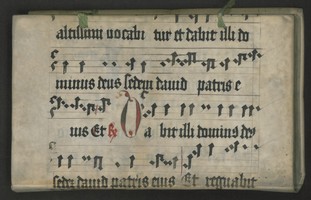 altissimi uocabi tur et dabit illi do
minus deus sedem dauid patris e
ius Et
a bit illi dominus de
sedem dauid patris eius Et regnabit